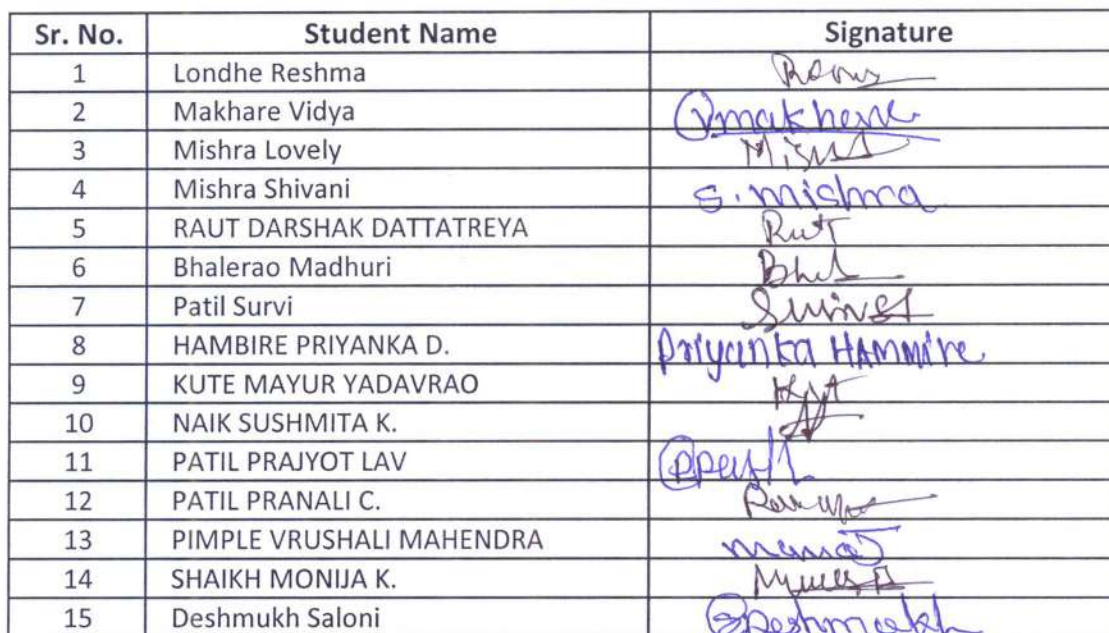 Sr. No. Student Name Signature
1 Londhe Reshma
2 Makhare Vidya
3 Mishra Lovely
4 Mishra Shivani S. mishra
5 RAUT DARSHAK DATTATREYA
6 Bhalerao Madhuri
7 Patil Survi
8 HAMBIRE PRIYANKA D. Priyanka
9 KUTE MAYUR YADAVRAO
10 NAIK SUSHMITA K.
11 PATIL PRAJYOT LAV
12 PATIL PRANALI C.
13 PIMPLE VRUSHALI MAHENDRA
14 SHAIKH MONIJA K.
15 Deshmukh Saloni